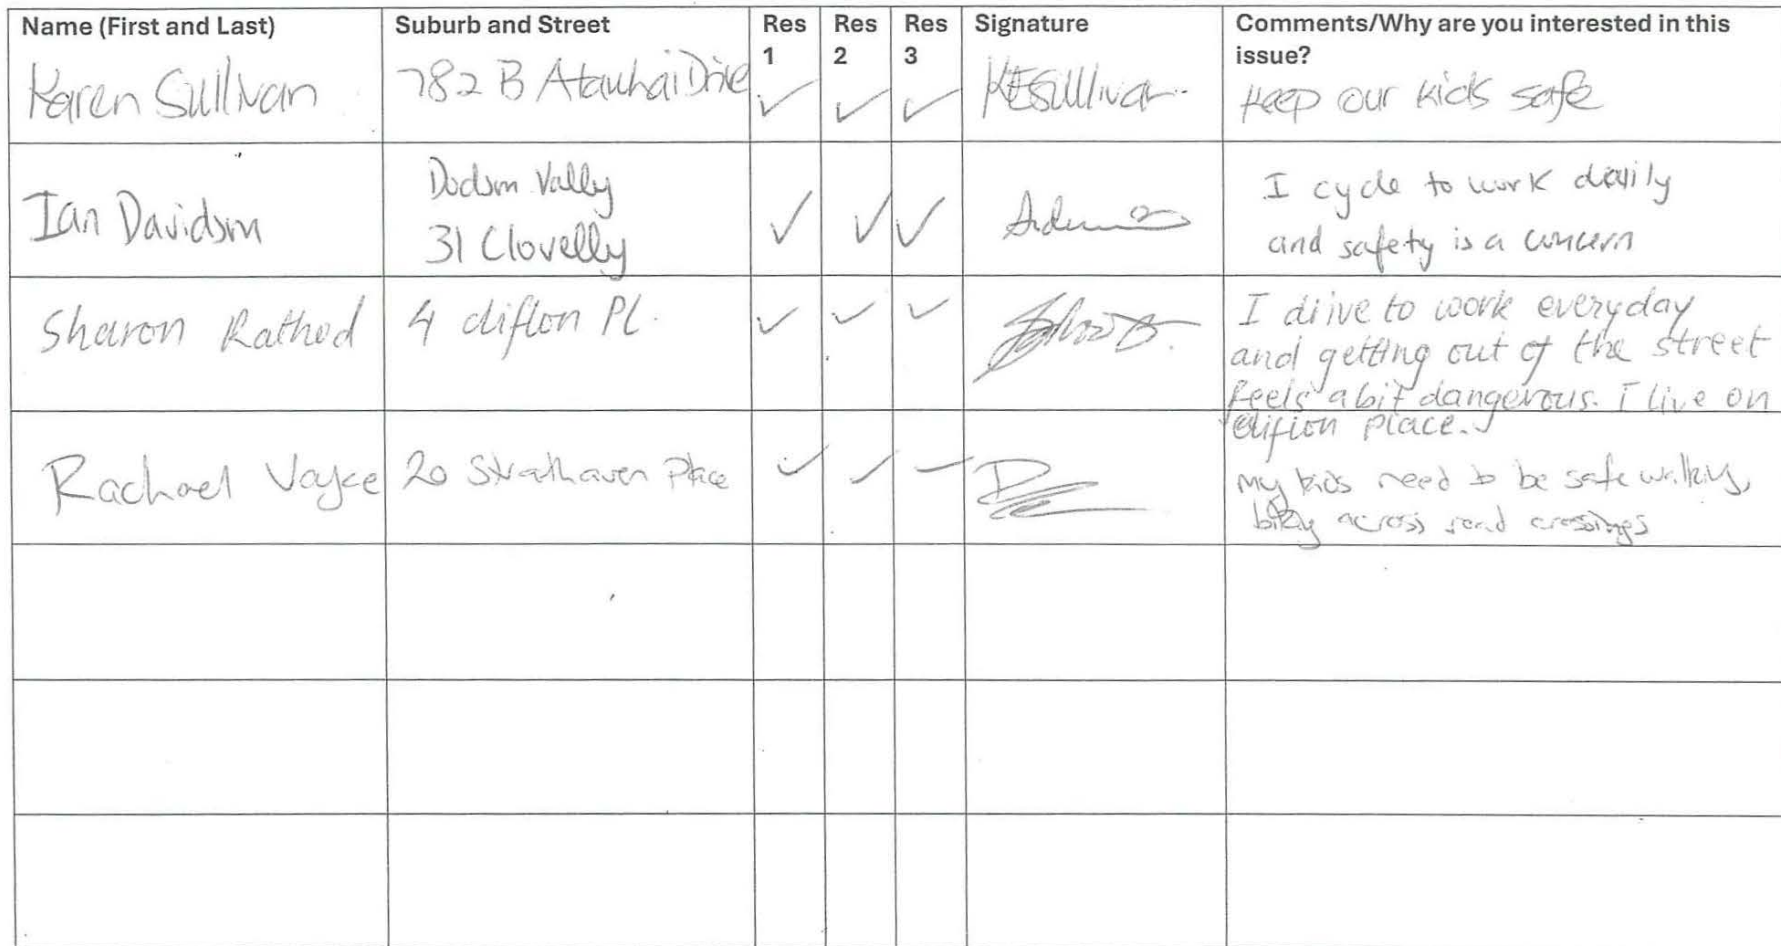 Name (First and Last) Suburb and Street Res 1 Res 2 Res 3 Signature Comments/Why are you interested in this issue?
Karen Sullivan 782 B Atawhai Drive ✓ ✓ ✓ KESullivan. Keep our kids safe
Ian Davidson Dodson Vally ✓ ✓ ✓ I cycle to work daily
31 Clovelly and safety is a concern
Sharon Rathod 4 clifton Pl. ✓ ✓ ✓ I drive to work everyday
and getting out of the street
feels a bit dangerous. I live on
clifton place.
Rachael 20 Strathaven Place ✓ ✓ ✓ My kids need to be safe walking,
biking across road crossings